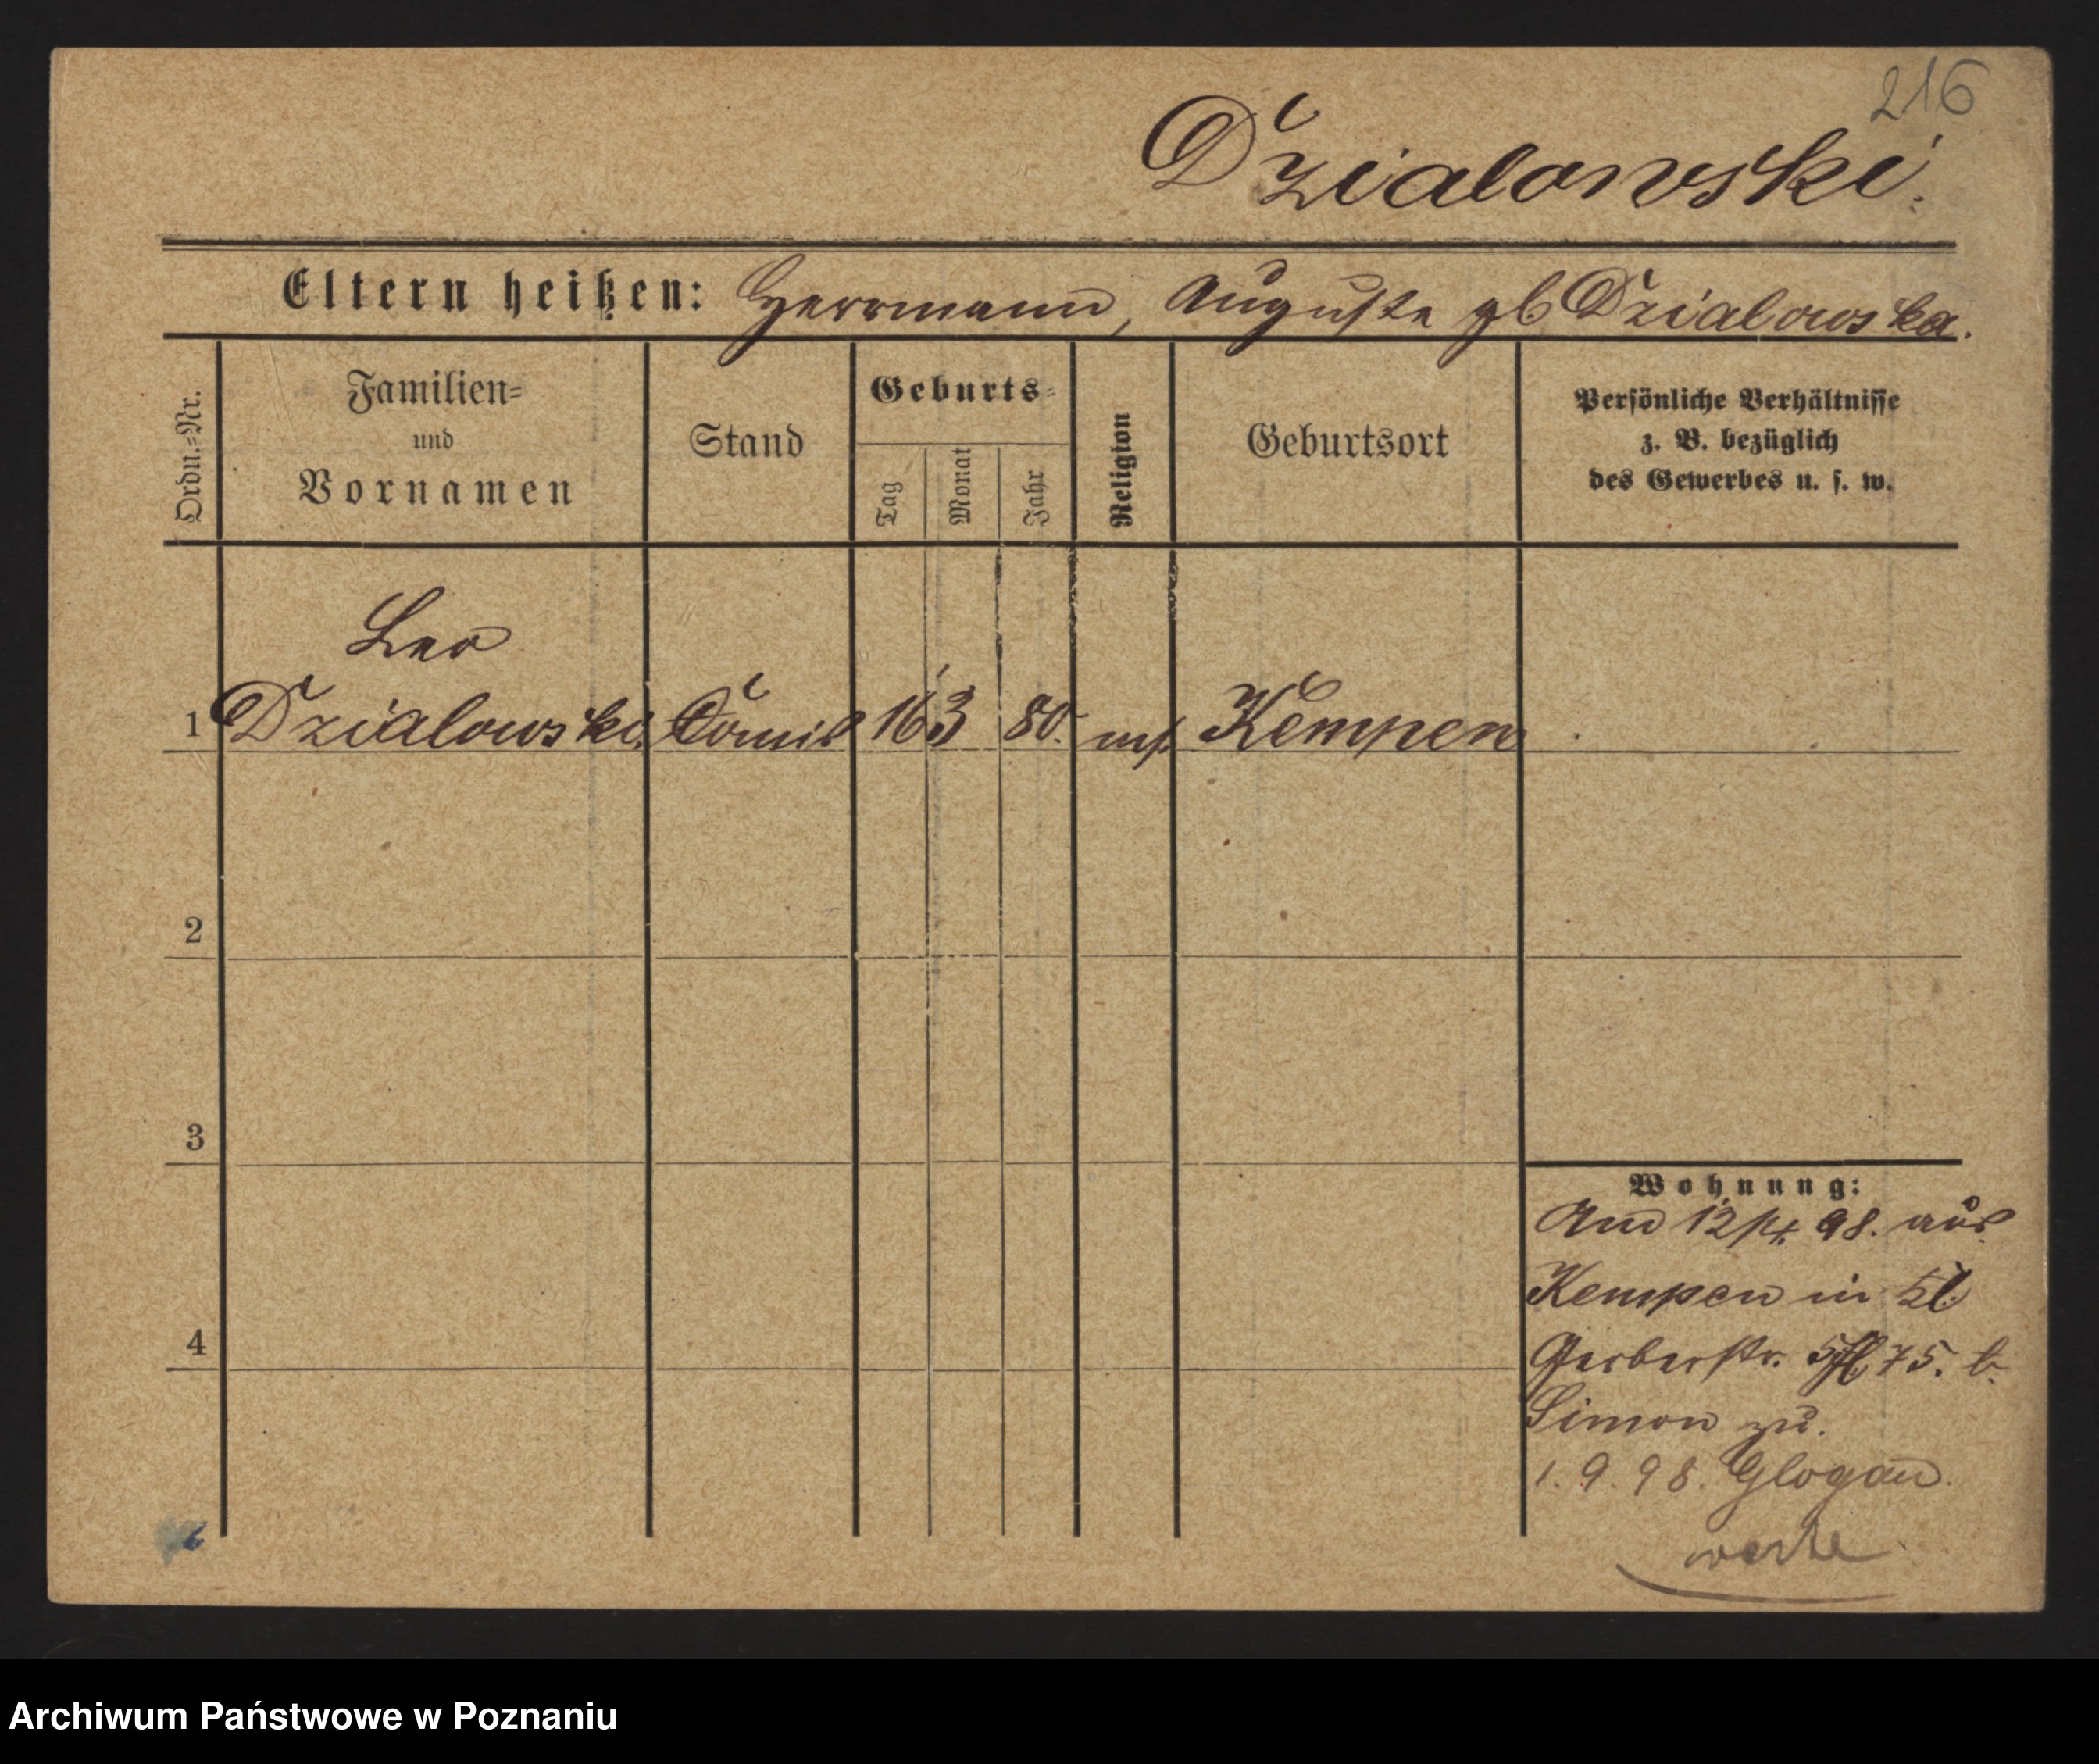 216
Dzialowski.
Eltern heißen: Herrmann, Auguste gb Dzialowska.
Ordn.=Nr.
Familien=
und
Vornamen
Stand
Geburts=
Tag
Monat
Jahr
Religion
Geburtsort
Persönliche Verhältnisse
z. B. bezüglich
des Gewerbes u. s. w.
Leo
1 Dzialowski. Comis 16 3 80. Kempen
2
3
4
Wohnung:
12/4. 98. aus
Kempen in Kl.
Gerberstr. 75. b.
Simon zu.
1. 9. 98. Glogau.
Archiwum Państwowe w Poznaniu